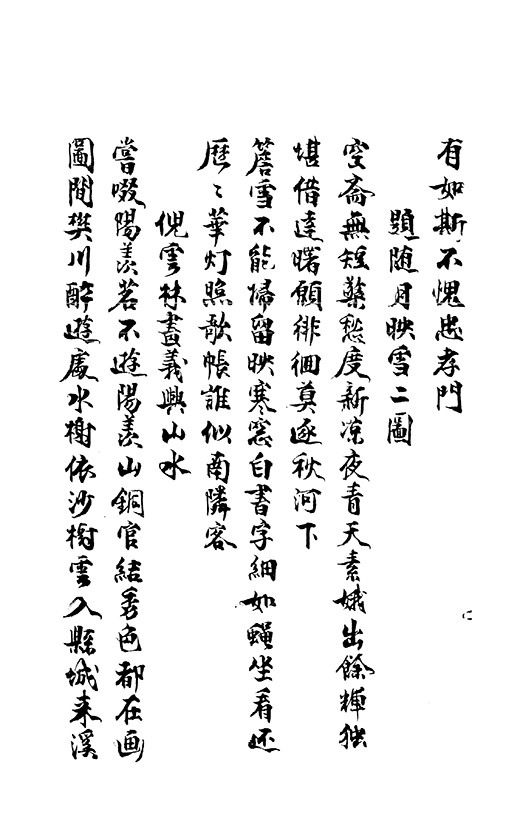 有如斯不愧忠孝門
題随月映雪二圖
空齋無短檠愁度新凉夜青天素娥出餘輝独
堪借達曙願徘徊莫逐秋河下
簷雪不能掃留映寒窓白書字細如蠅坐看还
歷〻華灯照歌帳誰似南隣客
倪雲林畫義興山水
嘗啜陽羨茗不遊陽羨山銅官結秀色都在画
圖間樊川醉遊處水榭依沙樹雲入縣城来溪